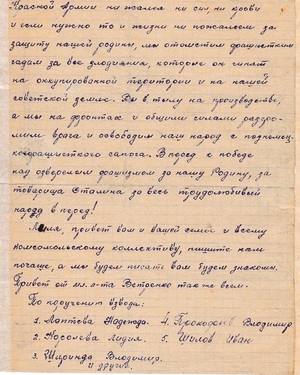 Красной Армии ни жалея ни сил, ни крови
и если нужно то и жизни ни пожалеем за
защиту нашей родины, мы отомстим фашистским
гадам за все злодеяния, которые он чинят
на оккупированной територии и на нашей
советской земле. Вы в тылу на производстве,
а мы на фронтах и общими силами разгро-
мим врага и освободим наш народ с под немец-
кофашисткого сапога. В перед к победе
над озверелом фашизмом за нашу Родину, за
товарища Сталина за весь трудолюбивый
народ в перед!
привет вам и вашей семьи и всему
комсомольскому коллективу, пишите нам
почаще, а мы будем писать вам будем знакомы.
Привет от мл. л-та так же всем.
По поручения взвода:
1. Лаптева Надежда. 4. Прохоров Владимир
2. Лидия. 5. Шилов Иван
3. Владимир.
и другие.